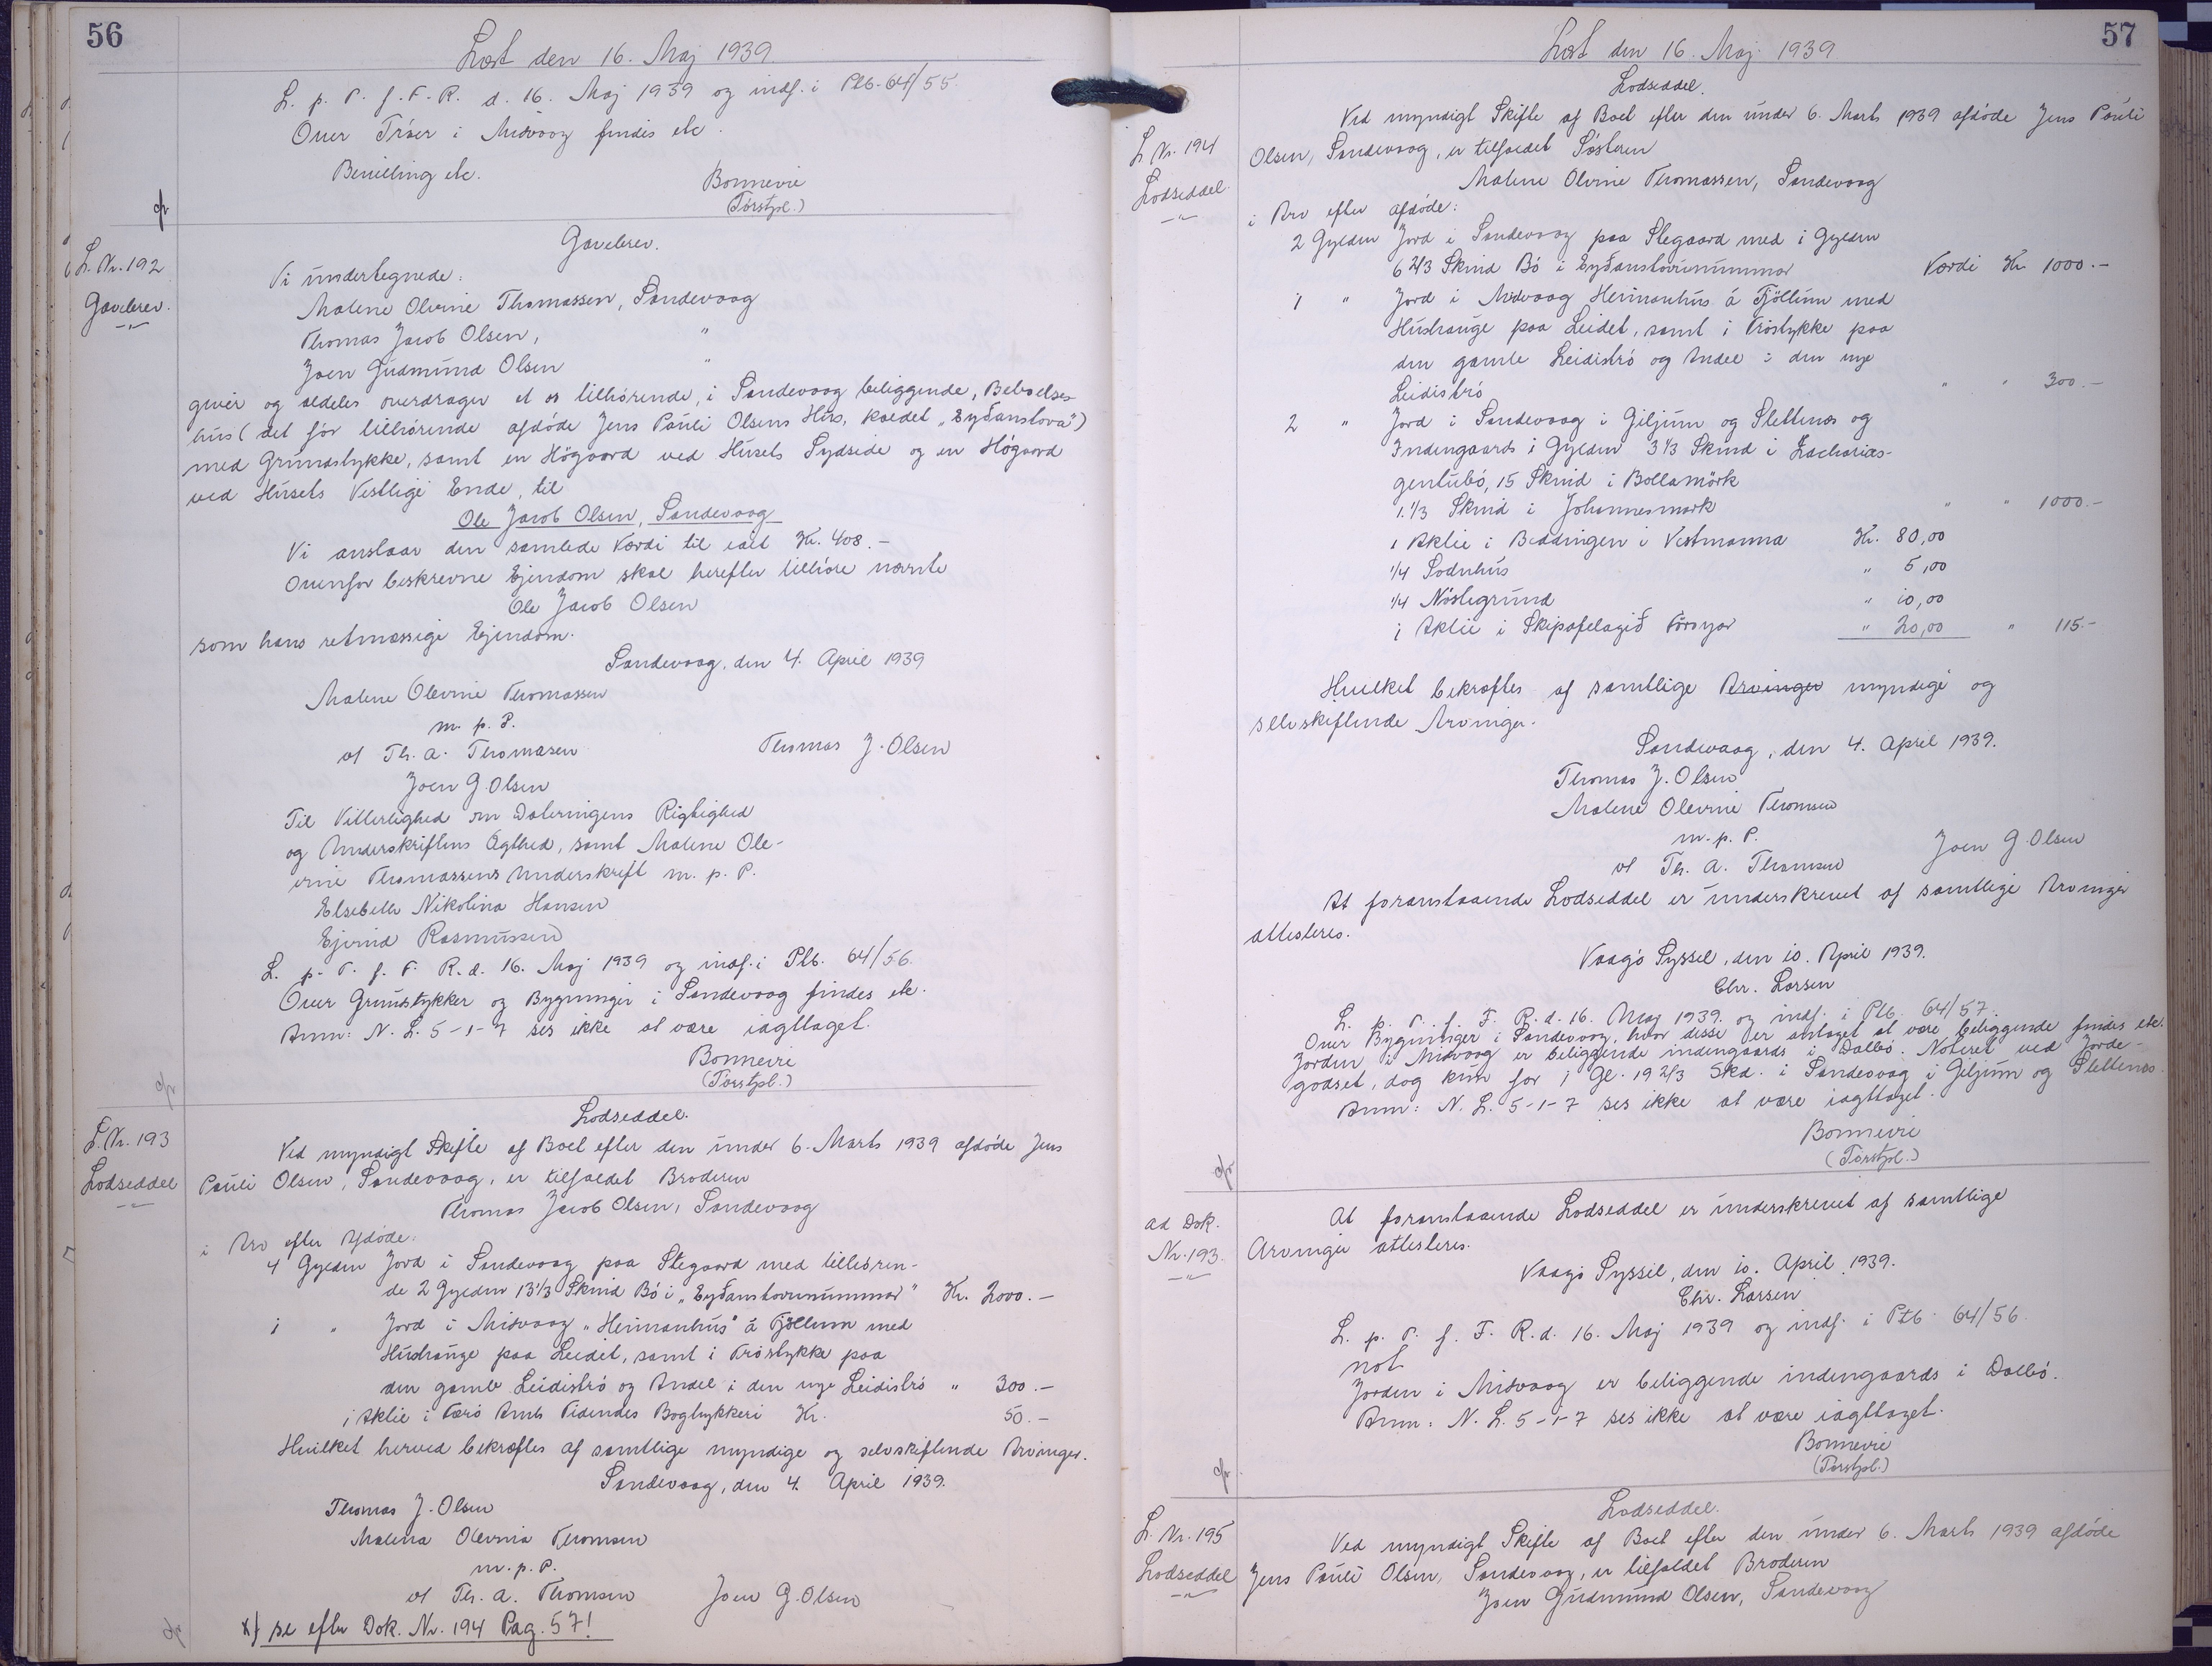 56
Læst den 16. Maj 1939.
L. p. T. f. F. R. d. 16. Maj 1939 og indf. i Ptb. 64/55.
Over Tróer i Midvaag findes etc.
Bevilling etc.
Bonnevie
(Torstpl.)
L. Nr. 192
Gavebrev.
Gavebrev.
Vi undertegnede:
Malene Olvine Thomassen, Sandevaag
Thomas Jacob Olsen, "
Joen Gudmund Olsen "
giver og aldeles overdrager et os tilhørende, i Sandevaag beliggende, Beboelses-
hus (det før tilhørende afdøde Jens Pauli Olsens Hus, kaldet "Eyðanstova")
med Grundstykke, samt en Høgaard ved Husets Sydside og en Høgaard
ved Husets Vestlige Ende, til
Ole Jacob Olsen, Sandevaag
Vi anslaar den samlede Værdi til ialt Kr. 408.-
Ovenfor beskrevne Ejendom skal herefter tilhøre nævnte
Ole Jacob Olsen
som hans retmæssige Ejendom.
Sandevaag, den 4. April 1939
Malene Olevine Thomassen
m. p. P.
v/ Th. A. Thomasen Thomas J. Olsen
Joen G. Olsen
Til Vitterlighed om Dateringens Rigtighed
og Underskriftens Ægthed, samt Malene Ole-
vine Thomassens Underskrift m. p. P.
Elsebeth Nikolina Hansen
Ejvind Rasmussen
L. p. T. f. F. R. d. 16. Maj 1939 og indf. i Ptb. 64/56.
Over Grundstykker og Bygninger i Sandevaag findes etc.
Anm: N. L. 5-1-7 ses ikke at være iagttaget.
Bonnevie
(Torstpl.)
L. Nr. 193
Lodseddel
Lodseddel.
Ved myndigt Skifte af Boet efter den under 6. Marts 1939 afdøde Jens
Pauli Olsen, Sandevaag, er tilfaldet Broderen
Thomas Jacob Olsen, Sandevaag
i Arv efter Afdøde:
4 Gylden Jord i Sandevaag paa Stegaard med tillesren-
de 2 Gylden 13 1/3 Skind Bø i "Eyðanstovunummar" Kr. 2000.-
1 " Jord i Midvaag "Heimanhús" á Fjøllum med
Hushauge paa Leidet, samt i Tróstykke paa
den gamle Leidistró og Andel i den nye Leidistró " 300.-
1 Aktie i Færø Amts Tidendes Bogtrykkeri Kr. 50.-
Hvilket herved bekræftes af samtlige myndige og selvskiftende Arvinger.
Sandevaag, den 4. April 1939.
Thomas J. Olsen
Malena Olevina Thomsen
m. p. P.
v/ Th. A. Thomsen Joen G. Olsen
x) se efter Dok. Nr. 194 Pag. 57!
57
Læst den 16. Maj 1939.
L. Nr. 194
Lodseddel.
Lodseddel.
Ved myndigt Skifte af Boet efter den under 6. Marts 1939 afdøde Jens Pauli
Olsen, Sandevaag, er tilfaldet Søsteren
Malene Olvine Thomassen, Sandevaag
i Arv efter afdøde:
2 Gylden Jord i Sandevaag paa Stegaard med i Gylden
6 2/3 Skind Bø i Eyðanstovunummar Værdi Kr. 1000.-
1 " Jord i Midvaag Heimanhús á Fjøllum med
Hushauge paa Leidet, samt i Tróstykke paa
den gamle Leidistró og Andel i den nye
Leidistró " " 300.-
2 " Jord i Sandevaag i Giljum og Slettenæs og
Indengaards i Gylden 3 1/3 Skind i Zacharias-
gentubø, 15 Skind i Bollamørk
1.1/3 Skind i Johannesmørk " " 1000.-
1 Aktie i Beddingen i Vestmanna Kr. 80,00
1/4 Sodnhús " 5,00
1/4 Nøstegrund " 10,00
1 Aktie i Skipafelagið Føroyar " 20,00 " 115.-
Hvilket bekræftes af samtlige Arvinger myndige og
selvskiftende Arvinger.
Sandevaag, den 4. April 1939.
Thomas J. Olsen
Malene Olevine Thomsen
m. p. P.
v/ Th. A. Thomsen Joen G. Olsen
At foranstaaende Lodseddel er underskrevet af samtlige Arvinger
attesteres.
Vaagø Syssel, den 10. April 1939.
Chr. Larsen
L. p. T. f. F. R. d. 16. Maj 1939. og indf. i Ptb. 64/57.
Over Bygninger i Sandevaag, hvor disse er antaget at være beliggende findes etc.
Jorden i Midvaag er beliggende indengaards i Dalbø. Noteret ved Jorde-
godset, dog kun for 1 Gl. 19 2/3 Skd. i Sandevaag i Giljum og Slettenæs.
Anm: N. L. 5-1-7 ses ikke at være iagttaget.
Bonnevie
(Torstpl.)
ad Dok.
Nr. 193.
At foranstaaende Lodseddel er underskrevet af samtlige
Arvinger attesteres.
Vaagø Syssel, den 10. April 1939.
Chr. Larsen
L. p. T. f. F. R. d. 16. Maj 1939 og indf. i Ptb. 64/56.
not
Jorden i Midvaag er beliggende indengaards i Dalbø.
Anm: N. L. 5-1-7 ses ikke at være iagttaget.
Bonnevie
(Torstpl.)
L. Nr. 195
Lodseddel
Lodseddel.
Ved myndigt Skifte af Boet efter den under 6. Marts 1939 afdøde
Jens Pauli Olsen, Sandevaag, er tilfaldet Broderen
Joen Gudmund Olsen, Sandevaag